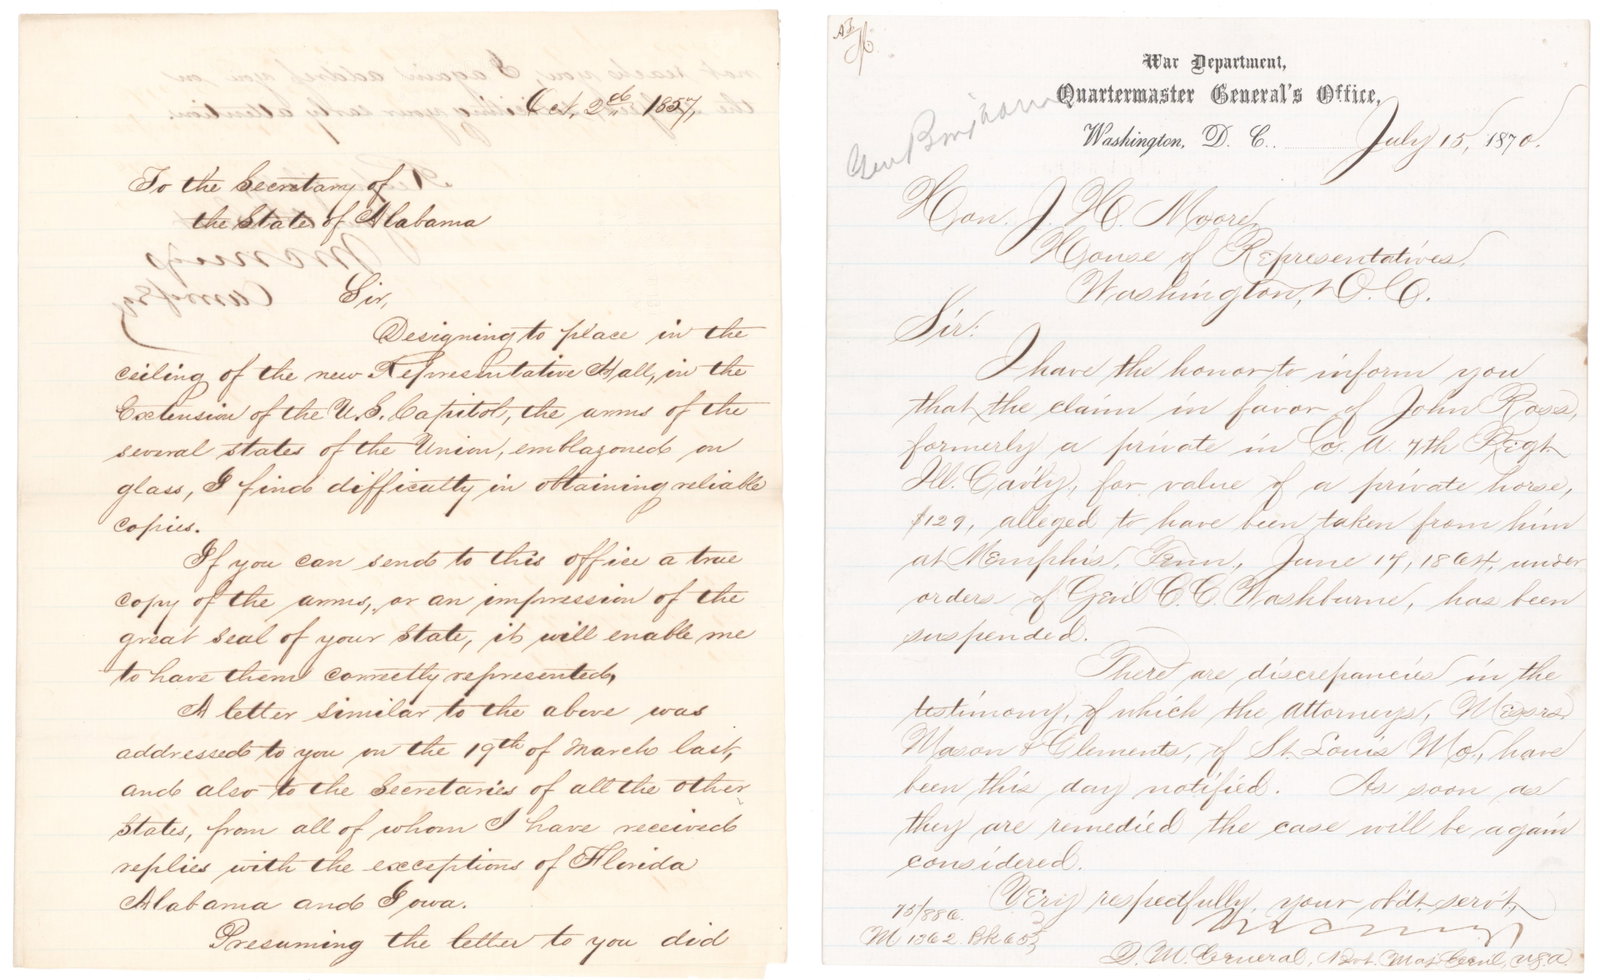 Oct. 2nd. 1857,
To the Secretary of
the State of Alabama
Sir,
Designing to place in the
ceiling of the new Representative Hall, in the
Extension of the U.S. Capitol, the arms of the
several states of the Union, emblazoned on
glass, I find difficulty in obtaining reliable
copies.
If you can send to this office a true
copy of the arms, or an impression of the
great seal of your State, it will enable me
to have them correctly represented,
A letter similar to the above was
addressed to you on the 19th of March last,
and also to the Secretaries of all the other
States, from all of whom I have received
replies with the exceptions of Florida
Alabama and Iowa.
Presuming the letter to you did
War Department,
Quartermaster General's Office,
Washington, D. C. July 15, 1870.
Hon. J. H. Moore,
House of Representatives,
Washington, D.C.
Sir:
I have the honor to inform you
that the claim in favor of John Ross,
formerly a private in Co. A. 7th Regt
Ill. Cav'ly, for value of a private horse,
$129, alleged to have been taken from him
at Memphis, Tenn, June 17, 1864, under
orders of Gen'l C. C. Washburne, has been
suspended.
There are discrepancies in the
testimony, of which the attorneys, Messrs
Mason & Clements, of St. Louis Mo., have
been this day notified. As soon as
they are remedied the case will be again
considered.
Very respectfully, your ob'dt. serv't,
75/886.
M 1362 Bk 65
Q. M. General, Bvt. Maj. Genl, U.S.A.